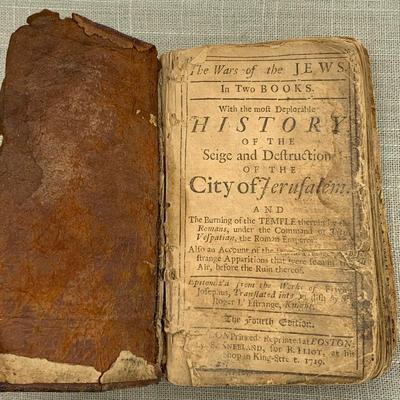 The Wars of the JEWS.
In Two BOOKS.
With the most Deplorable
HISTORY
OF THE
Seige and Destruction
OF THE
City of Jerusalem.
AND
The Burning of the TEMPLE therein by the
Romans, under the Command of
Vespatian, the Roman Emperor.
Also an Account of the
strange Apparitions that were seen in
Air, before the Ruin thereof.
Epitomiz'd from the Works of
Josephus, Translated into English by
Roger L'Estrange, Knight.
The Fourth Edition.
LONDON Printed: Reprinted at BOSTON
by S. KNEELAND, for B. ELIOT, at his
Shop in King-Street. 1719.